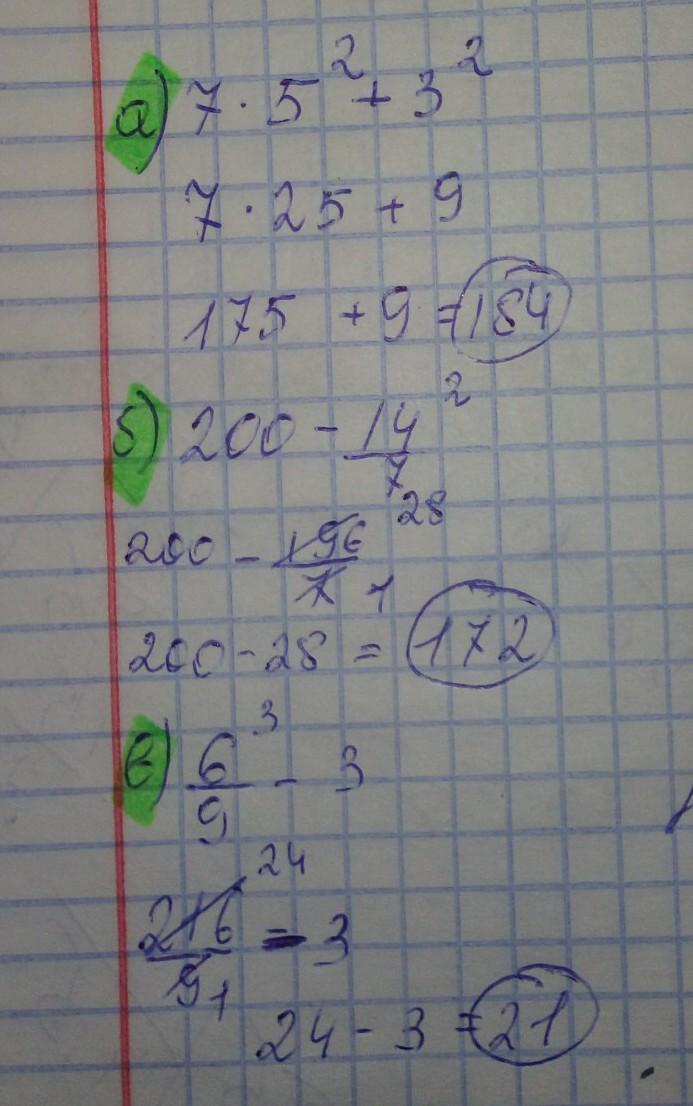 а) 7 · 5² + 3²
7 · 25 + 9
175 + 9 = 184
б) 200 - 14² / 7
200 - 196 / 7 28 1
200 - 28 = 172
в) 6³ / 9 - 3
216 / 9 24 1 - 3
24 - 3 = 21